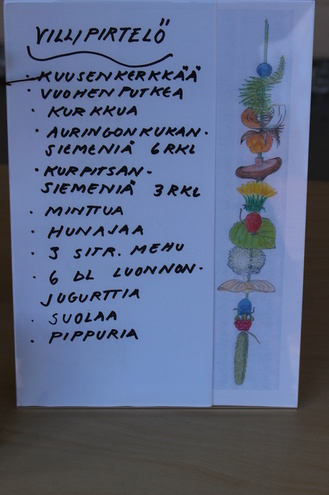 VILLIPIRTELÖ
· KUUSENKERKKÄÄ
· VUOHENPUTKEA
· KURKKUA
· AURINGONKUKAN-
SIEMENIÄ 6 RKL
· KURPITSAN-
SIEMENIÄ 3 RKL
· MINTTUA
· HUNAJAA
· 3 SITR. MEHU
· 6 DL LUONNON-
JUGURTTIA
· SUOLAA
· PIPPURIA